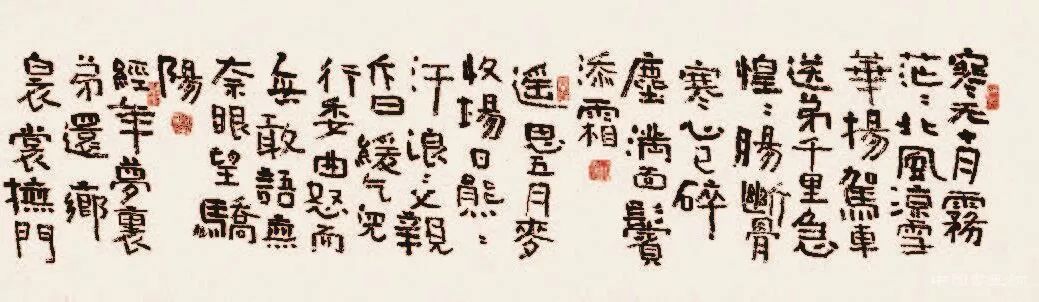 寒天十月霧
茫〻北風涼雪
華揚駕車
送弟千里急
惶〻腸斷骨
寒心已碎
塵滿面鬢
添霜
遥思五月麥
收場日熊〻
汗浪〻父親
斥曰緩气兒
行委曲怒而
敢語無
奈眼望驕
陽
經年夢裏
弟還鄉
裳撫門